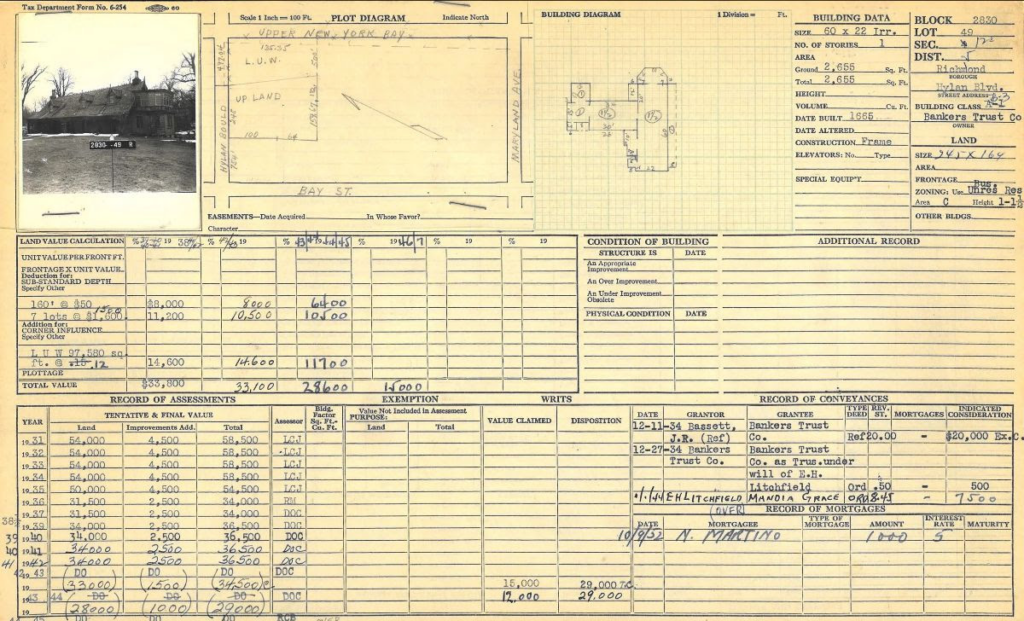 Tax Department Form No. 6-254
60
Scale 1 Inch = 100 Ft. PLOT DIAGRAM Indicate North
UPPER NEW YORK BAY
L.U.W.
UP LAND
HYLAN BOULD
100
MARYLAND AVE
BAY ST.
2830 -49 R
EASEMENTS—Date Acquired In Whose Favor?
Character
BUILDING DIAGRAM 1 Division = Ft.
BUILDING DATA
SIZE 60 x 22 Irr.
NO. OF STORIES 1
AREA
Ground 2,655 Sq. Ft.
Total 2,655 Sq. Ft.
HEIGHT
VOLUME Cu. Ft.
DATE BUILT 1665
DATE ALTERED
CONSTRUCTION Frame
ELEVATORS: No. Type
SPECIAL EQUIP'T
BLOCK 2830
LOT 49
SEC.
DIST. 5
Richmond
BOROUGH
Hylan Blvd.
STREET ADDRESS
BUILDING CLASS
Bankers Trust Co
OWNER
LAND
SIZE 345 X 164
AREA
FRONTAGE
Bus.
ZONING: Use Unres Res
Area C Height
OTHER BLDGS.
LAND VALUE CALCULATION
UNIT VALUE PER FRONT FT.
FRONTAGE X UNIT VALUE
Deduction for:
SUB-STANDARD DEPTH
Specify Other
160' @ $50 $8,000 8000 6400
1500
7 lots @ $1,600 11,200 10,500 10500
Addition for:
CORNER INFLUENCE
Specify Other
L U W 97,580 sq.
ft. @ .15 .12 14,600 14.600 11700
PLOTTAGE
TOTAL VALUE $33,800 33,100 28600 15000
CONDITION OF BUILDING
STRUCTURE IS DATE
An Appropriate Improvement
An Over Improvement
An Under Improvement
Obsolete
PHYSICAL CONDITION DATE
ADDITIONAL RECORD
RECORD OF ASSESSMENTS EXEMPTION WRITS
YEAR TENTATIVE & FINAL VALUE Assessor Bldg. Factor Sq. Ft.- Cu. Ft. Value Not Included in Assessment VALUE CLAIMED DISPOSITION
PURPOSE:
Land Improvements Add. Total Land Total
1931 54,000 4,500 58,500 LCJ
1932 54,000 4,500 58,500 LCJ
1933 54,000 4,500 58,500 LCJ
1934 54,000 4,500 58,500 LCJ
1935 50,000 4,500 54,500 LCJ
1936 31,500 2,500 34,000
1937 31,500 2,500 34,000 DOC
1939 34,000 2,500 36,500 DOC
1940 34,000 2,500 36,500 DOC
1941 34000 2500 36500 DOC
1942 34000 2500 36500 DOC
43 DO DO DO DOC
(33000) (1500) (34500) 15,000 29,000
44 DO DO DO DOC 12,000 29,000
(28000) (1000) (29000)
RECORD OF CONVEYANCES
DATE GRANTOR GRANTEE TYPE DEED REV. ST. MORTGAGES INDICATED CONSIDERATION
12-11-34 Bassett, Bankers Trust
J.R. (Ref) Co. Ref 20.00 - $20,000 Ex.C.
12-27-34 Bankers Bankers Trust
Trust Co. Co. as Trus.under
will of E.H.
Litchfield Ord .50 - 500
EH LITCHFIELD MANDIA GRACE ORD 8.45 - 7500
(OVER)
RECORD OF MORTGAGES
DATE MORTGAGEE TYPE OF MORTGAGE AMOUNT INTEREST RATE MATURITY
10/9/52 N. MARTINO 1000 5